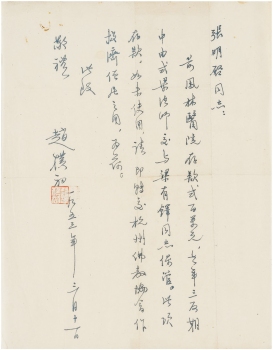 張明啟同志：
前鳳林醫院存款弍百萬元，去年三石期
中由武景法师交与梁有鐸同志保管。此項
存款，如未使用，請即轉交杭州佛教協會作
救濟僧尼之用，為荷。
此致
敬禮
趙樸初
一九五三年三月十一日